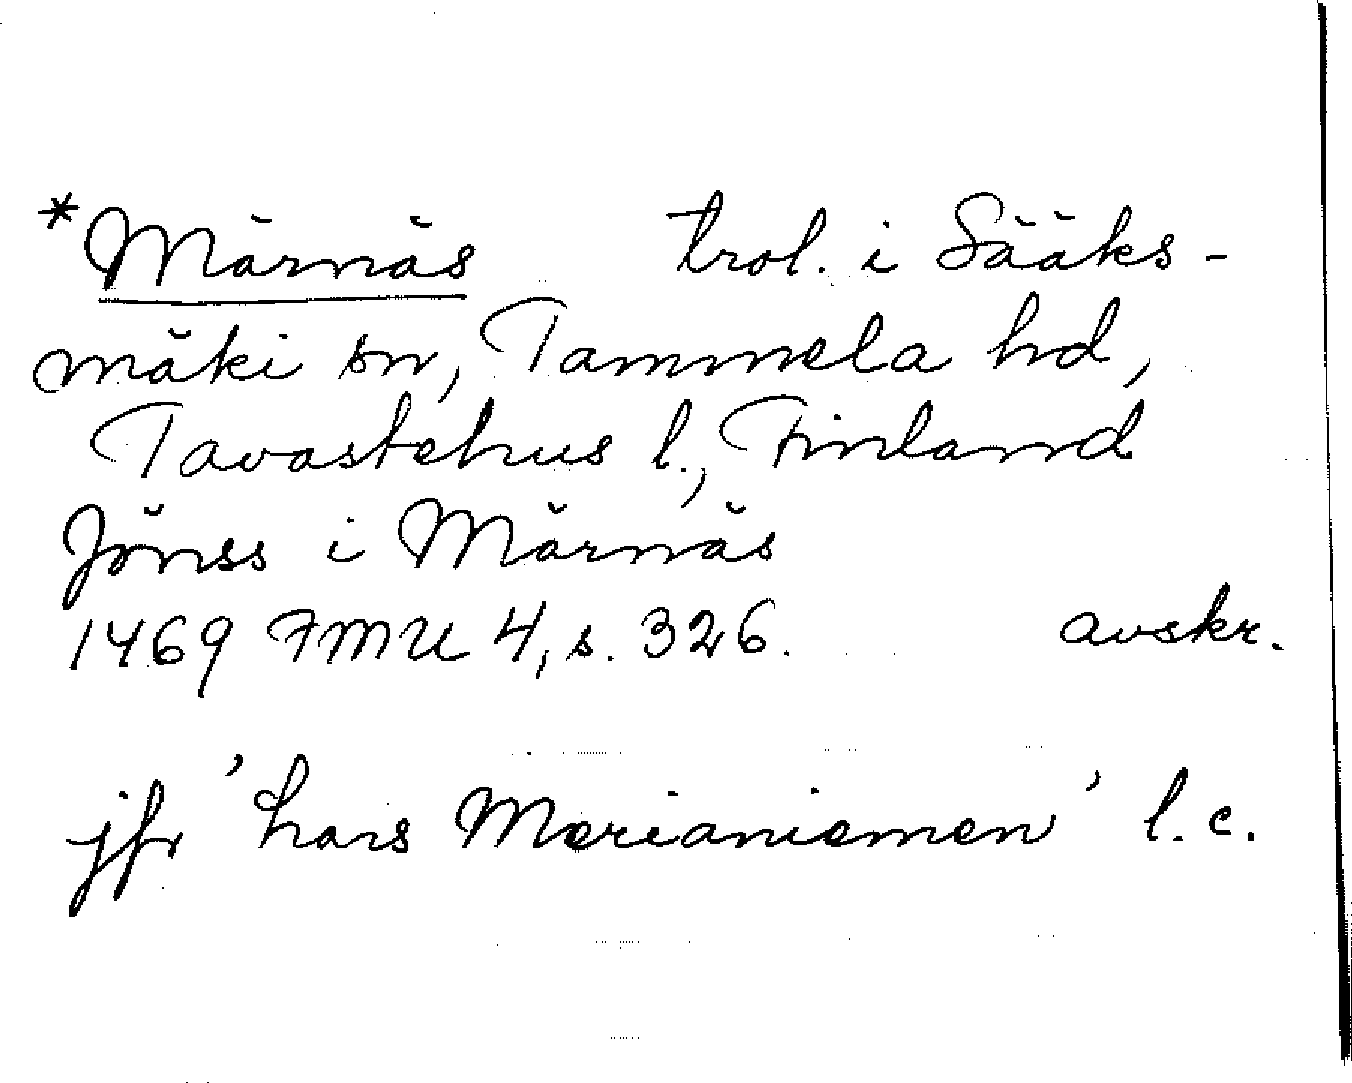 *Märnäs trol. i Sääks-
mäki sn, Tammela hd,
Tavastehus l., Finland
Jönss i Märnäs
1469 FMU 4, s. 326. avskr.
jfr 'Lars Merianiemen' l.c.